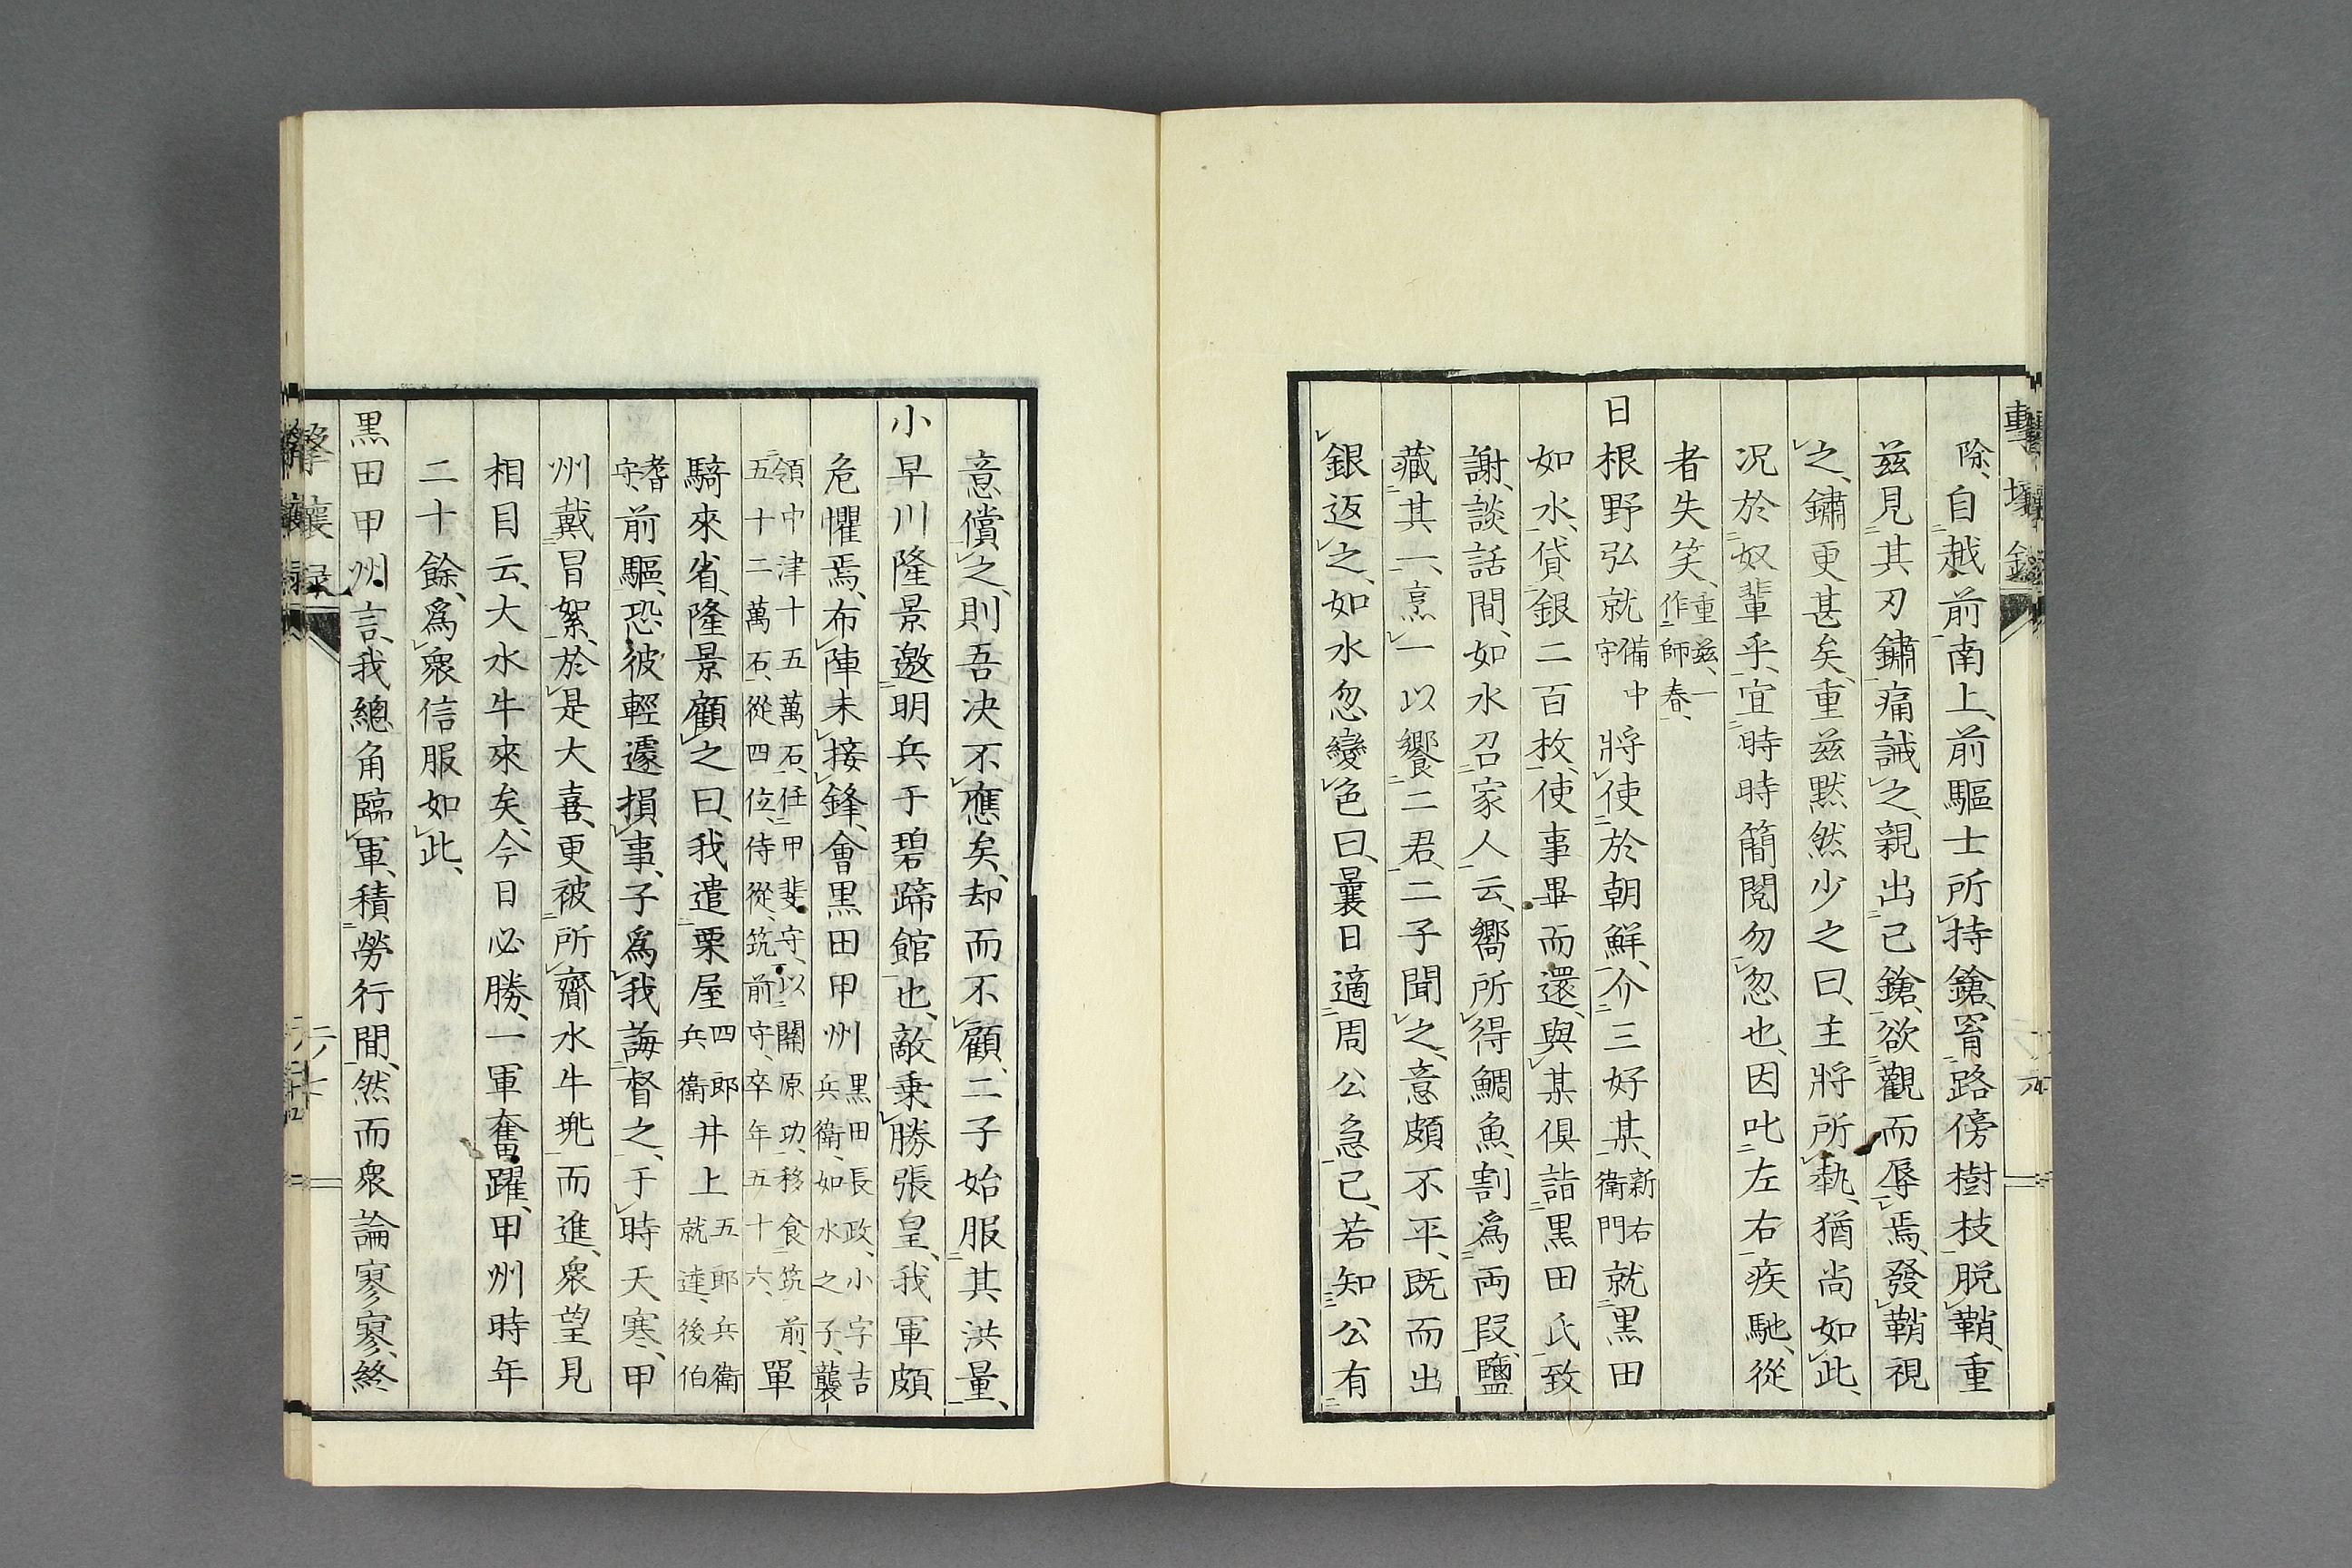 除、自越前南上、前驅士所持鎗、罥路傍樹枝脱鞘、重
茲見其刃鏽痛誡之、親出己鎗、欲觀而辱焉、發鞘視
之、鏽更甚矣、重茲黙然少之曰、主將所執、猶尚如此、
况於奴輩乎、宜時時簡閲勿忽也、因叱左右疾馳、從
者失笑、重茲、一作師春、
日根野弘就備中守將使於朝鮮、介三好某、新右衛門就黒田
如水、貸銀二百枚、使事畢而還、與某倶詣黒田氏致
謝、談話間、如水召家人云、嚮所得鯛魚、割爲両段、鹽
藏其一、烹一以饗二君、二子聞之、意頗不平、既而出
銀返之、如水忽變色曰、曩日適周公急已、若知公有
意償之、則吾决不應矣、却而不顧、二子始服其洪量、
小早川隆景邀明兵于碧蹄館也、敵乗勝張皇、我軍頗
危懼焉、布陣未接鋒、會黒田甲州黒田長政、小字吉兵衛、如水之子、襲
領中津十五萬石、任甲斐守、以關原功、移食筑前、五十二萬石、從四位、侍從、筑前守、卒年五十六、單
騎來省、隆景顧之曰、我遣栗屋四郎兵衛井上五郎兵衛就達、後伯
耆守、前驅、恐彼輕遽損事、子爲我誨督之、于時天寒、甲
州戴冒絮、於是大喜、更被所齎水牛兠而進、衆望見
相目云、大水牛來矣、今日必勝、一軍奮躍、甲州時年
二十餘、爲衆信服如此、
黒田甲州言、我總角臨軍、積勞行間、然而衆論寥寥、終